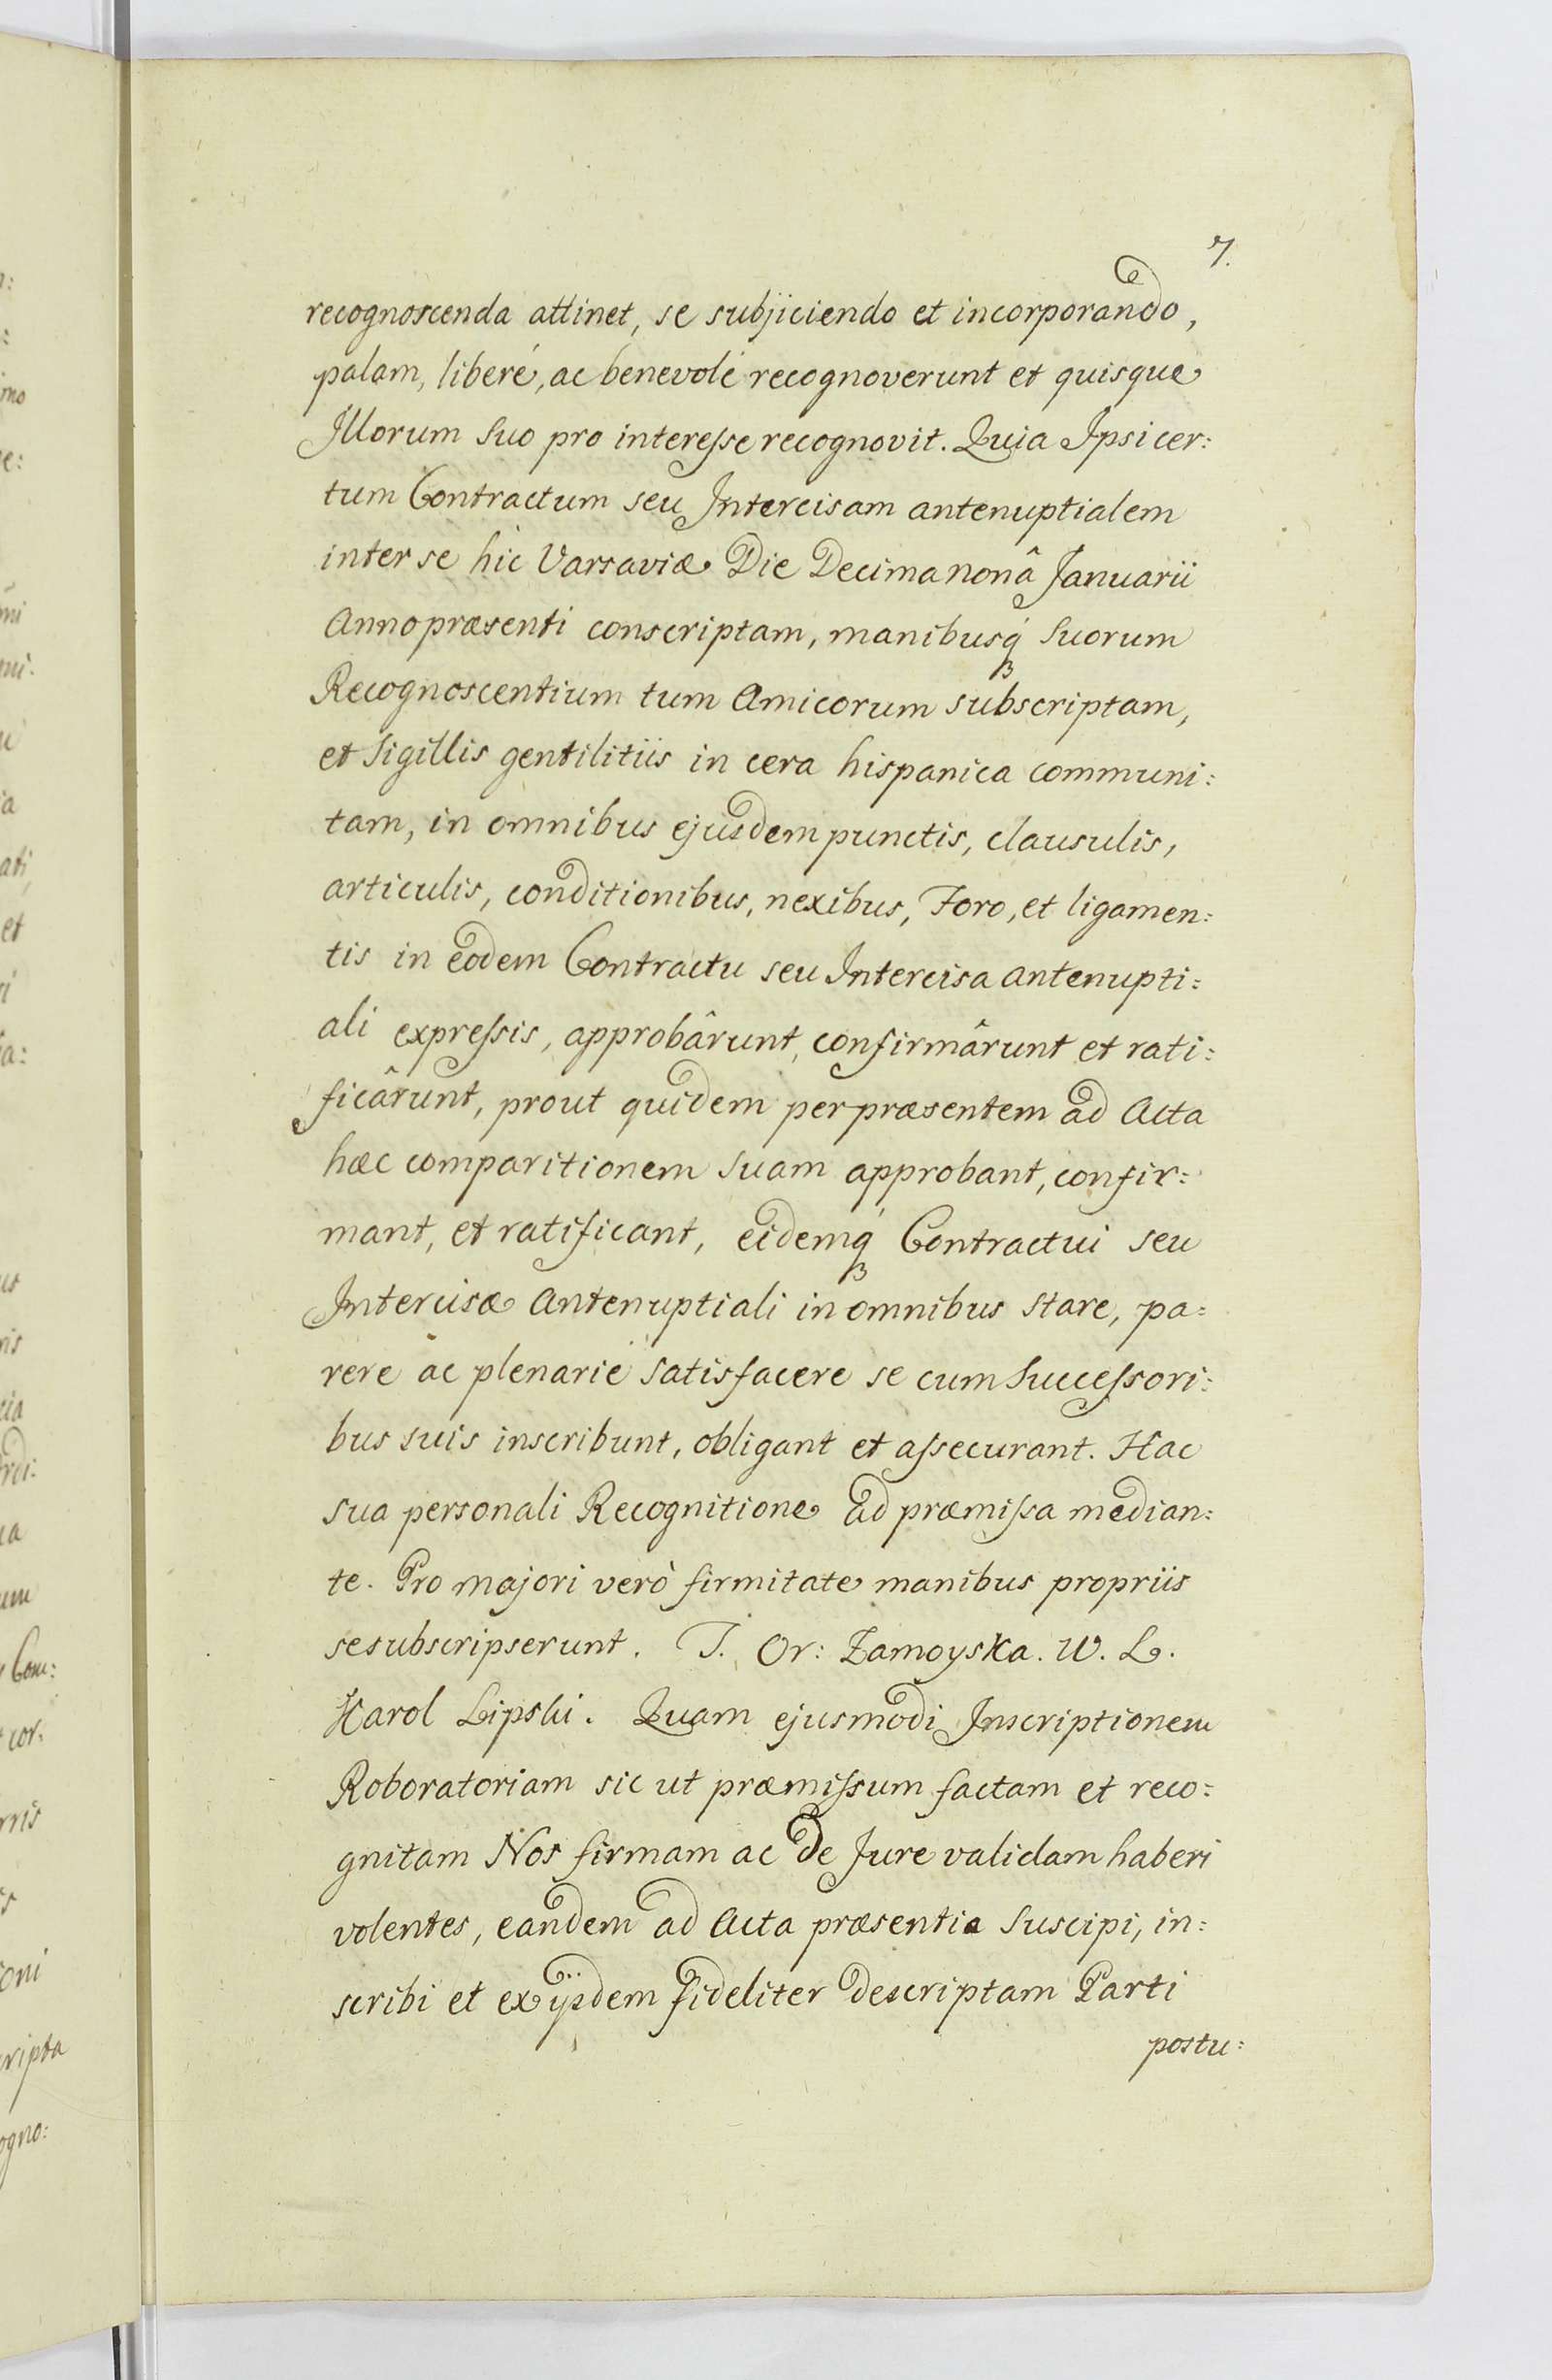 7.
recognoscenda attinet, se subjiciendo et incorporando,
palam, liberé, ac benevolé recognoverunt et quisque
Illorum suo pro interesse recognovit. Quia Ipsi cer:
tum Contractum seu Intercisam antenuptialem
inter se hic Varsaviæ Die Decima nonâ Januarii
Anno præsenti conscriptam, manibusq́ suorum
Recognoscentium tum Amicorum subscriptam,
et sigillis gentilitiis in cera hispanica communi:
tam, in omnibus ejusdem punctis, clausulis,
articulis, conditionibus, nexibus, Foro, et ligamen:
tis in eodem Contractu seu Intercisa antenupti:
ali expressis, approbârunt, confirmârunt et rati:
ficârunt, prout quidem per præsentem ad Acta
hæc comparitionem suam approbant, confir:
mant, et ratificant, eidemq́ Contractui seu
Intercisæ Antenuptiali in omnibus stare, pa:
rere ac plenarié satisfacere se cum successori:
bus suis inscribunt, obligant et assecurant. Hac
sua personali Recognitione ad præmissa median:
te. Pro majori verò firmitate manibus propriis
se subscripserunt. T. Or: Zamoyska. W. L.
Karol Lipski. Quam ejusmodi Inscriptionem
Roboratoriam sic ut præmissum factam et reco:
gnitam Nos firmam ac de Jure validam haberi
volentes, eandem ad Acta præsentia suscipi, in:
scribi et ex ijsdem fideliter descriptam Parti
postu: